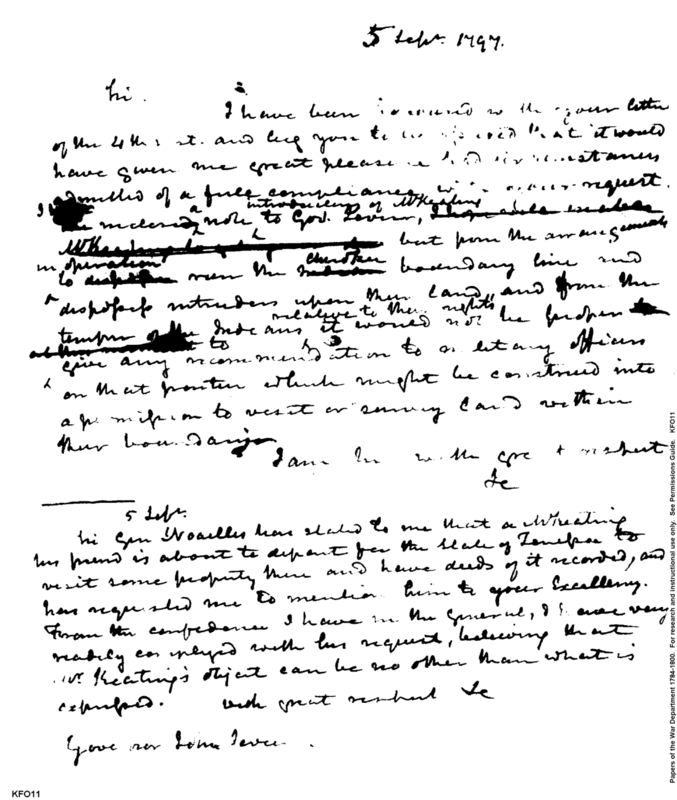 5 Sept. 1797.
Sir. I have been honoured with your letter
of the 4th inst. and beg you to be assured that it would
have given me great pleasure had circumstances
admitted of a full compliance with your request.
introductory of Mr Keating
I inclosed note to Gov. Sevier,
but from the arrangements
in operation Cherokee
to run the boundary line and
dispossess intruders upon their land, and from the
relative to their rights
temper of the Indians it would not be proper
to
give any recommendation to military officers
on that frontier which might be construed into
a permission to visit or survey land within
their boundaries
I am Sir with great respect
&c
5 Sept.
Sir Gen Noailles has stated to me that a Mr Keating
his friend is about to depart for the State of Tenessee to
visit some property there and have deeds of it recorded, and
has requested me to mention him to your Excellency.
From the confidence I have in the General, I have very
readily complyed with his request, believing that
Mr Keating's object can be no other than what is
expressed. with great respect &c
Governor John Sevier.
KFO11
Papers of the War Department 1784-1800. For research and instructional use only. See Permissions Guide. KFO11